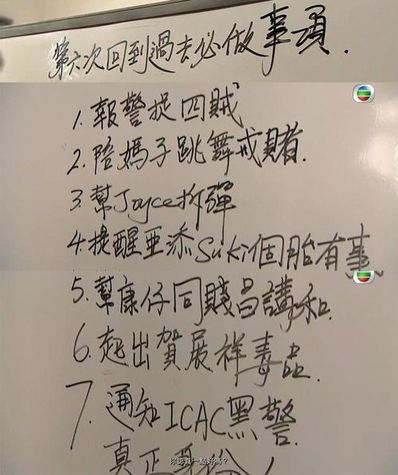 第六次回到過去必做事項.
1. 報警捉四賊
2. 陪媽子跳舞戒賭.
3. 幫Joyce拆彈
4. 提醒亜添Suki個胎有事
5. 幫康仔同賤昌講和.
6. 起出賀展祥毒品.
7. 通知ICAC黑警
真正